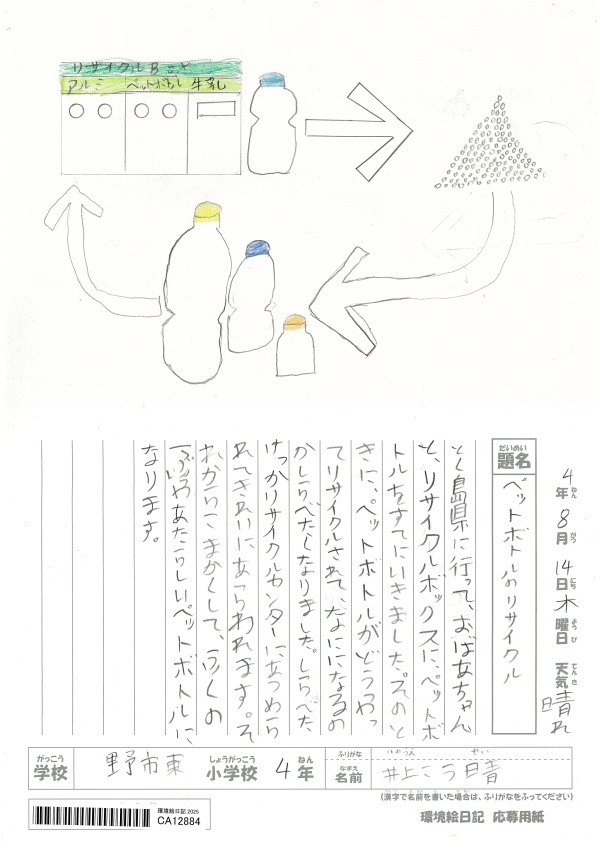 リサイクルBox
アルミ ペットボトル 牛乳
4年8月14日木曜日 天気晴れ
ねん がつ にち ようび てんき
だいめい
題名 ペットボトルのリサイクル
とく島県に行って、おばあちゃん
と、リサイクルボックスに、ペットボ
トルをすてにいきました。そのと
きに、ペットボトルがどうやっ
てリサイクルされて、なにになるの
かしらべたくなりました。しらべた
けっかリサイクルセンターにあつめら
れてきれいにあらわれます。そ
れからこまかくして、
あたらしいペットボトルに
なります。
がっこう しょうがっこう ねん ふりがな
学校 野市東 小学校 4年
なまえ
名前 井上こう晴
(漢字で名前を書いた場合は、ふりがなをふってください)
環境絵日記 応募用紙
環境絵日記 2025
CA12884